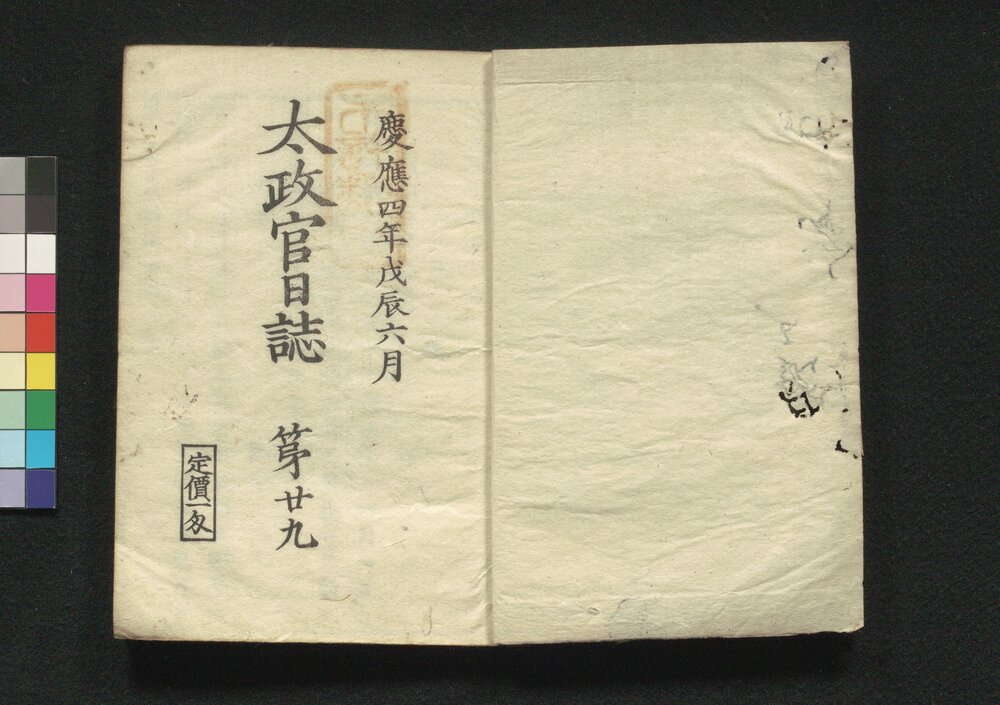 慶應四年戊辰六月
太政官日誌 第廿九
定價一匁